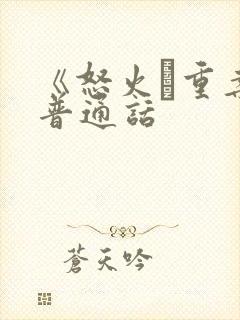 《怒火·重案
普通话
蒼天吟